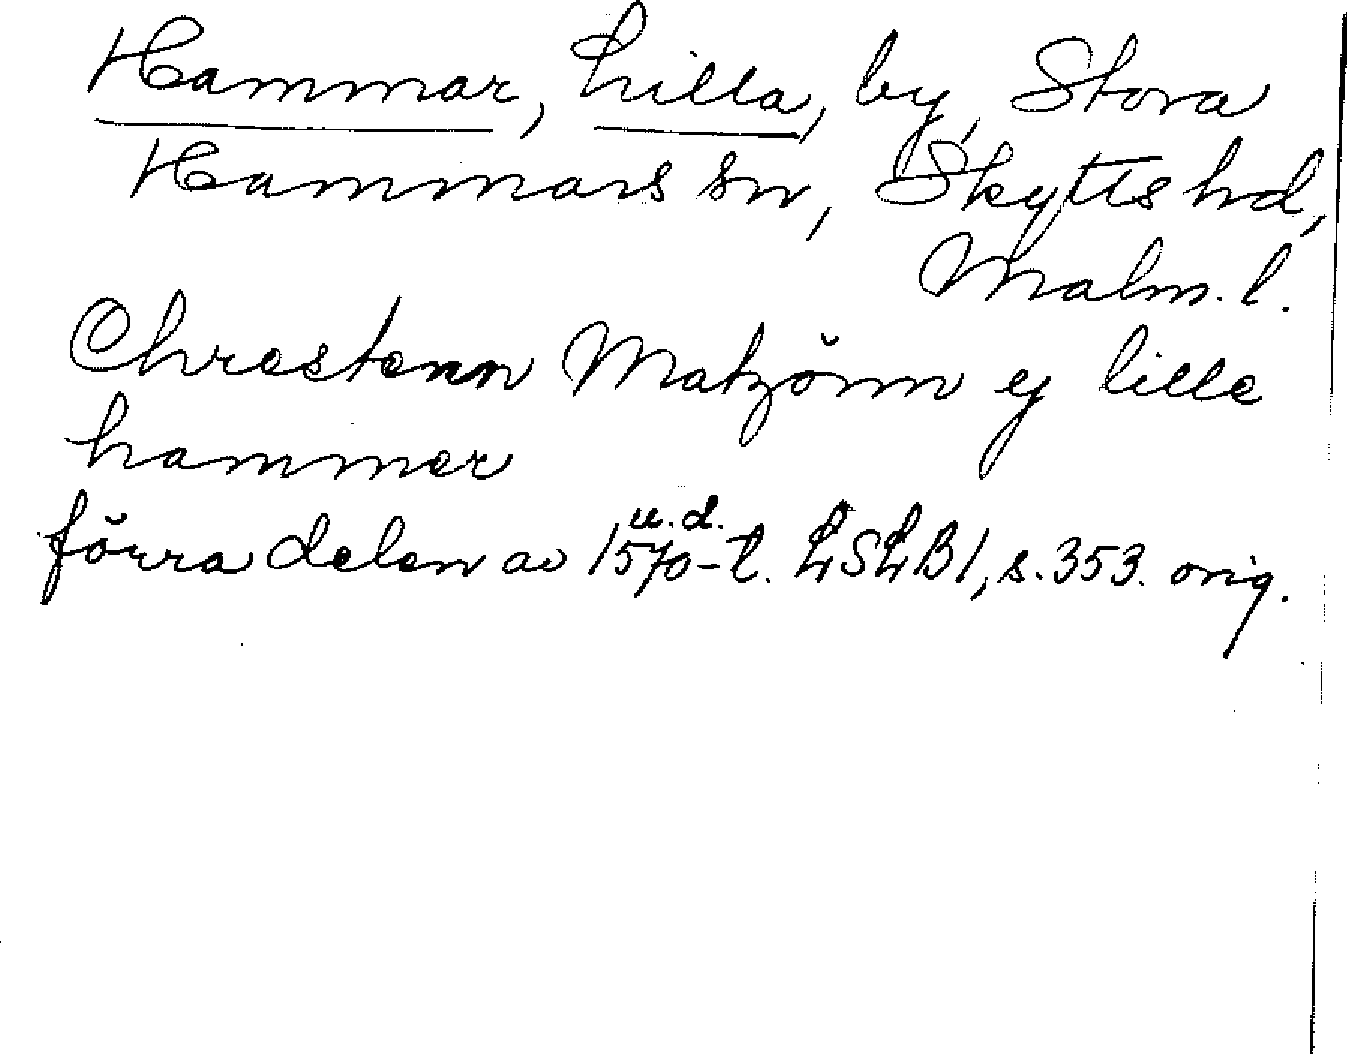 Hammar, Lilla, by, Stora
Hammars sn, Skytts hd,
Malm. l.
Chrestenn Matzönn ej lille
hammer
u. d.
förra delen av 1570-t. LSLB1, s. 353. orig.